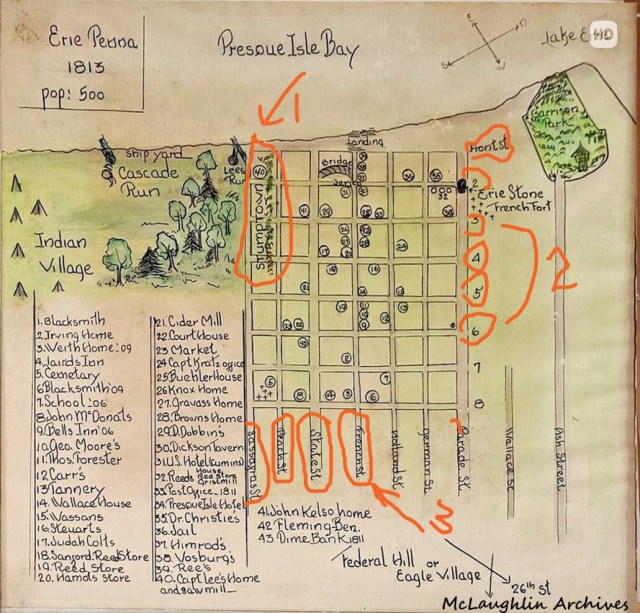 Erie Penna
1813
pop: 500
Presque Isle Bay
Lake Erie
HD
Garrison
Park
1
Landing
Front st
ship yard
Cascade
Run
Lees
Run
40
Bridge
Erie Stone
French Fort
Stumptown
Indian
Village
2
3
4
5
6
7
8
2
1. Blacksmith
2. Irving Home
3. Weith Home: 09
4. Lairds Inn
5. Cemetary
6. Blacksmith 09
7. School: 06
8. John McDonals
9. Bells Inn '06
10. Geo. Moore's
11. Thos. Forester
12. Carr's
13. Tannery
14. Wallace House
15. Wassans
16. Steuarts
17. Judah Colts
18. Sanford: Reed Store
19. Reed Store
20. Hamots Store
21. Cider Mill
22. Court House
23 Market
24 Capt Kratz office
25 Buehler House
26 Knox Home
27. Gravass Home
28. Browns Home
29. D. Dobbin's
30. Dickson Tavern
31. U.S. Hotel (Cumins)
32 Reeds House Red Store Gristmill
33. Post Office - 1811
34. Presque Isle Hotel
35. Dr. Christies
36. Jail
37. Himrod's
38 Vosburg's
39. Ree's
40. Capt Lee's Home
and saw mill
Sassafrass St
Peach St
State St
French St
Holland St.
German St.
Parade St.
Wallace st
Ash Street
3
41. John Kelso home
42 Fleming-Ben.
43 Dime Bank 1811
Federal Hill or
Eagle Village
26th st
McLaughlin Archives